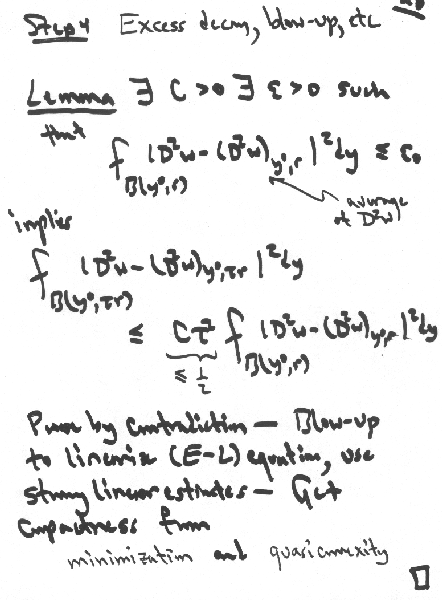 Step 4 Excess decay, blow-up, etc
Lemma ∃ C>0 ∃ ε>0 such
that
⨍_{B(y⁰,r)} |D²w - (D²w)_{y⁰,r}|² dy ≤ ε₀
average
of D²w
implies
⨍_{B(y⁰,τr)} |D²w - (D²w)_{y⁰,τr}|² dy
≤ Cτ² ⨍_{B(y⁰,r)} |D²w - (D²w)_{y⁰,r}|² dy
≤ 1/2
Prove by contradiction — Blow-up
to linearize (E-L) equation, use
strong linear estimates — Get
compactness from
minimization and quasiconvexity
□